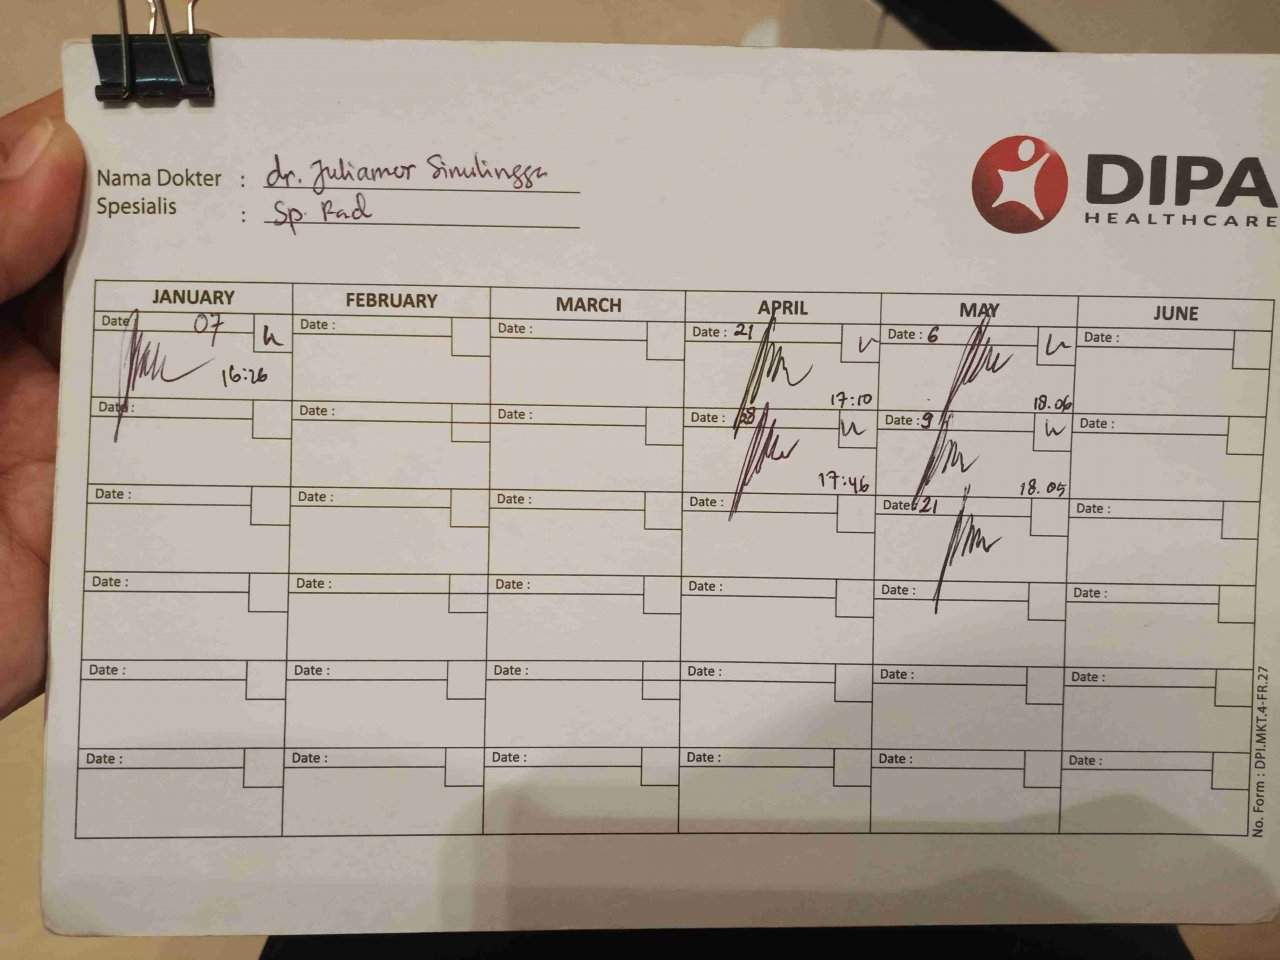 DIPA
HEALTHCARE
Nama Dokter : dr. Juliamor Sinulingga
Spesialis : Sp. Rad
JANUARY FEBRUARY MARCH APRIL MAY JUNE
Date 07 Date : Date : Date : 21 Date : 6 Date :
16:26 17:10 18.06
Date : Date : Date : Date : 28 Date : 9 Date :
17:46 18.05
Date : Date : Date : Date : Date : 21 Date :
Date : Date : Date : Date : Date : Date :
Date : Date : Date : Date : Date : Date :
Date : Date : Date : Date : Date : Date :
No. Form : DPI.MKT.4-FR.27